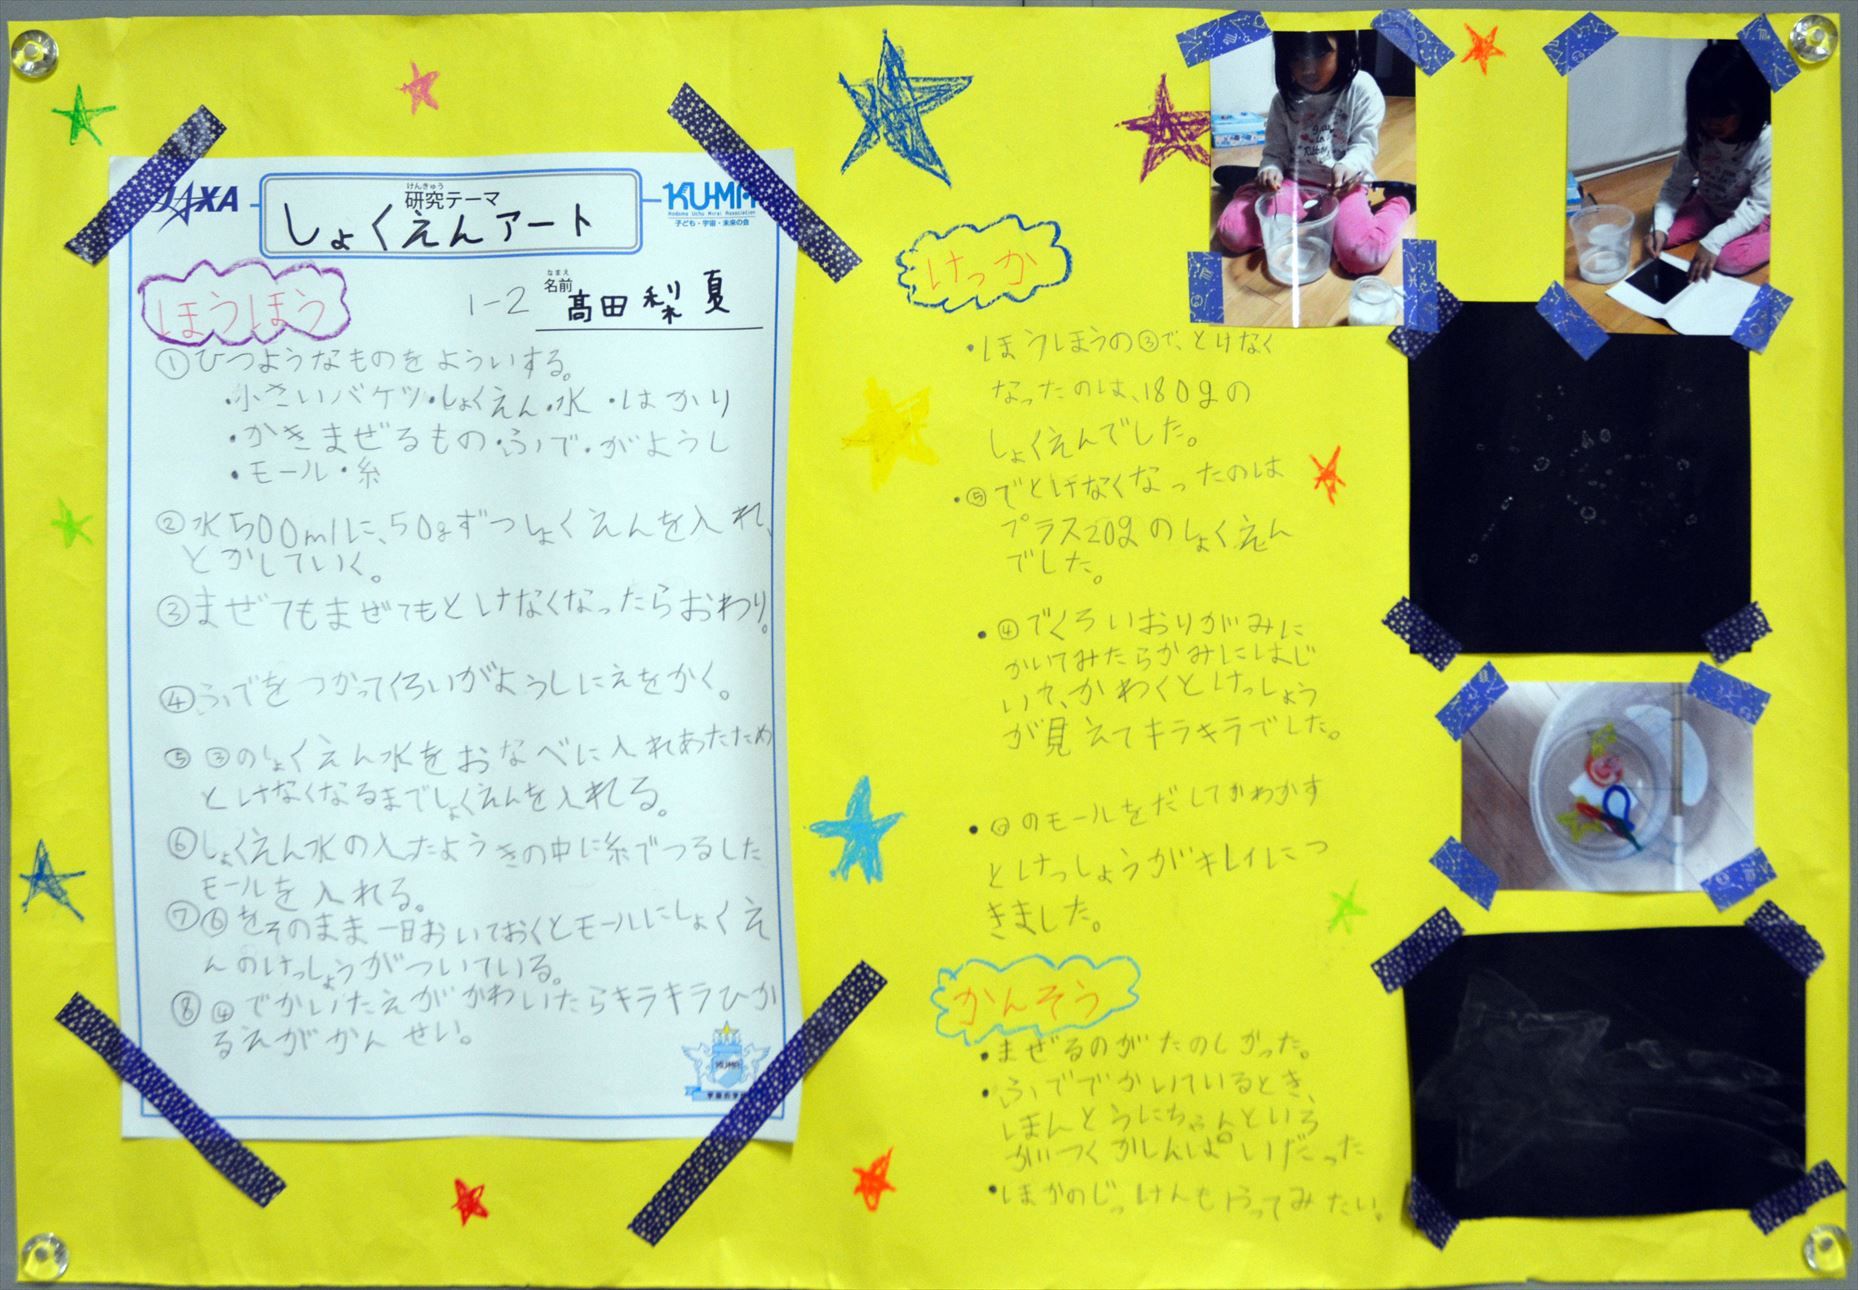 JAXA
けんきゅう
研究テーマ
しょくえんアート
KUMA
Kodomo Uchu Mirai Association
子ども・宇宙・未来の会
ほうほう
1-2
なまえ
名前
髙田 梨夏
①ひつようなものをよういする。
・小さいバケツ・しょくえん・水・はかり
・かきまぜるもの・ふで・がようし
・モール・糸
②水500mlに、50gずつしょくえんを入れ、
とかしていく。
③まぜてもまぜてもとけなくなったらおわり。
④ふでをつかってくろいがようしにえをかく。
⑤③のしょくえん水をおなべに入れあたため
とけなくなるまでしょくえんを入れる。
⑥しょくえん水の入ったようきの中に糸でつるした
モールを入れる。
⑦⑥をそのまま一日おいておくとモールにしょくえ
んのけっしょうがついている。
⑧④でかいたえがかわいたらキラキラひか
るえがかんせい。
KUMA
けっか
・ほうほうの③で、とけなく
なったのは、180gの
しょくえんでした。
・⑤でとけなくなったのは
プラス20gのしょくえん
でした。
・④でくろいおりがみに
かいてみたらかみにはじ
いて、かわくとけっしょう
が見えてキラキラでした。
・⑥のモールをだしてかわかす
とけっしょうがキレイにつ
きました。
かんそう
・まぜるのがたのしかった。
・ふででかいているとき、
ほんとうにちゃんといろ
がつくかしんぱいだった
・ほかのじっけんもやってみたい。